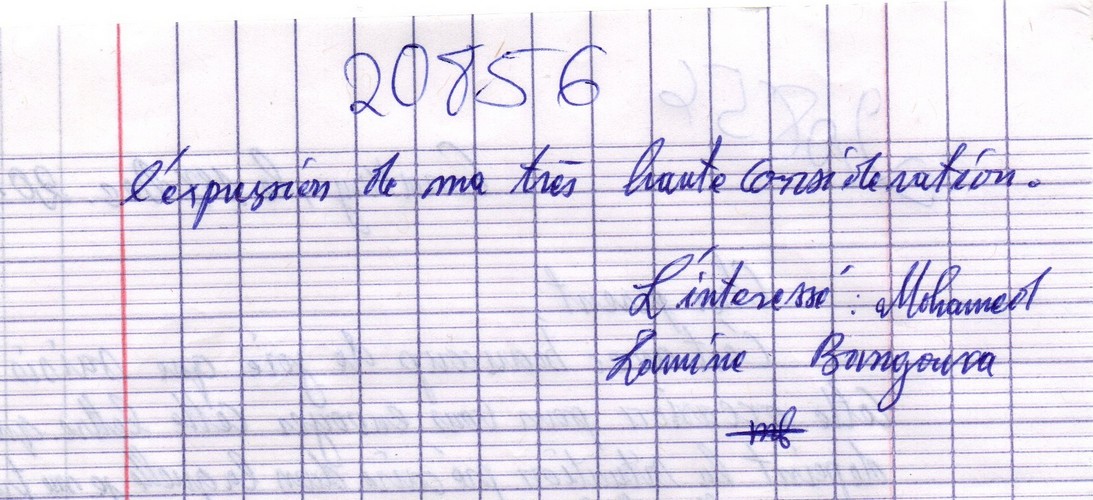 20856
l'éxpression de ma très haute Considération.
L'interessé : Mohamed
Lamine Bangoura